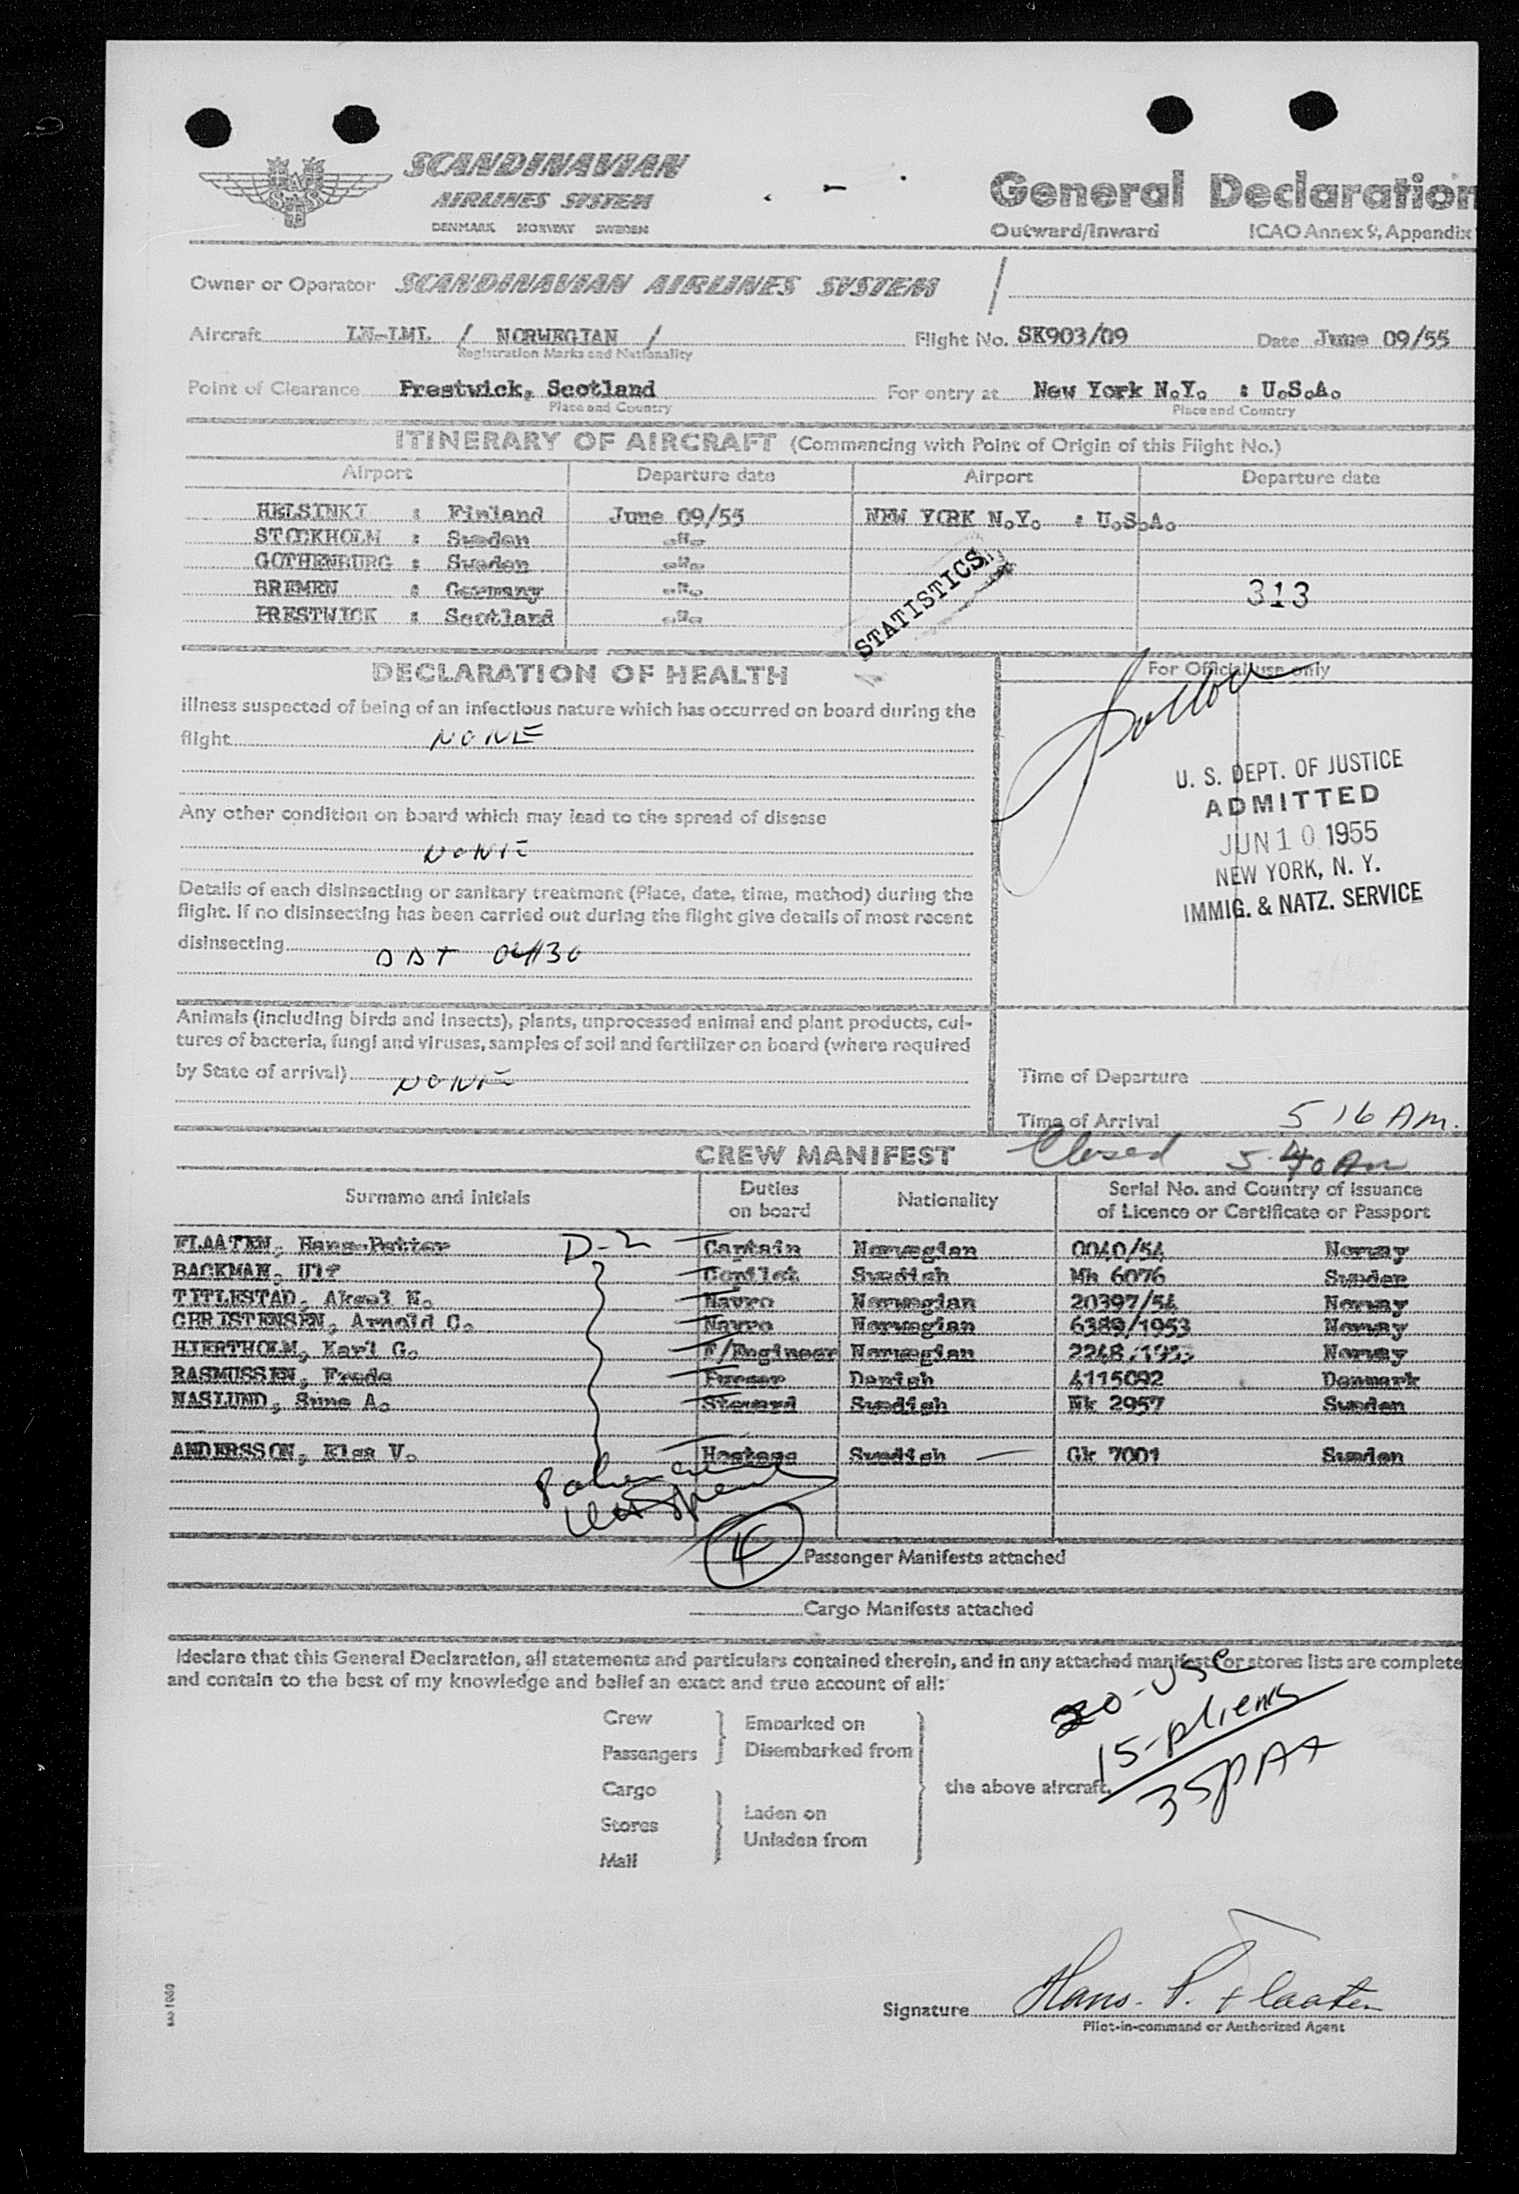 SCANDINAVIAN
AIRLINES SYSTEM
DENMARK NORWAY SWEDEN
General Declaration
Outward/Inward ICAO Annex 9, Appendix
Owner or Operator SCANDINAVIAN AIRLINES SYSTEM /
Aircraft LN-LML / NORWEGIAN / Flight No. SK903/09 Date June 09/55
Registration Marks and Nationality
Point of Clearance Prestwick, Scotland For entry at New York N.Y. : U.S.A.
Place and Country Place and Country
ITINERARY OF AIRCRAFT (Commencing with Point of Origin of this Flight No.)
Airport Departure date Airport Departure date
HELSINKI : Finland June 09/55 NEW YORK N.Y. : U.S.A.
STOCKHOLM : Sweden -"-
GOTHENBURG : Sweden -"-
BREMEN : Germany -"- 313
PRESTWICK : Scotland -"-
STATISTICS
DECLARATION OF HEALTH
For Official use only
Illness suspected of being of an infectious nature which has occurred on board during the
flight NONE
Any other condition on board which may lead to the spread of disease
NONE
Details of each disinsecting or sanitary treatment (Place, date, time, method) during the
flight. If no disinsecting has been carried out during the flight give details of most recent
disinsecting DDT 0430
U. S. DEPT. OF JUSTICE
ADMITTED
JUN 10 1955
NEW YORK, N. Y.
IMMIG. & NATZ. SERVICE
Animals (including birds and insects), plants, unprocessed animal and plant products, cul-
tures of bacteria, fungi and viruses, samples of soil and fertilizer on board (where required
by State of arrival) NONE
Time of Departure
Time of Arrival 5 16 AM.
Closed 5.40 AM
CREW MANIFEST
Surname and Initials Duties on board Nationality Serial No. and Country of Issuance of Licence or Certificate or Passport
FLAATEN, Hans-Petter D-2 Captain Norwegian 0040/54 Norway
BACKMAN, Ulf Copilot Swedish Mh 6076 Sweden
TITLESTAD, Aksel N. Navro Norwegian 20397/54 Norway
CHRISTENSEN, Arnold C. Navro Norwegian 6389/1953 Norway
HJERTHOLM, Karl G. F/Engineer Norwegian 2248/1953 Norway
RASMUSSEN, Frede Purser Danish 4115092 Denmark
NASLUND, Sune A. Steward Swedish Nk 2957 Sweden
ANDERSSON, Elsa V. Hostess Swedish Gk 7001 Sweden
4 Passenger Manifests attached
Cargo Manifests attached
I declare that this General Declaration, all statements and particulars contained therein, and in any attached manifests or stores lists are complete
and contain to the best of my knowledge and belief an exact and true account of all:
20-USC
15-Aliens
35 PAX
Crew
Passengers
Embarked on
Disembarked from
Cargo
Stores
Mail
Laden on
Unladen from
the above aircraft.
Signature Hans. P. Flaaten
Pilot-in-command or Authorized Agent